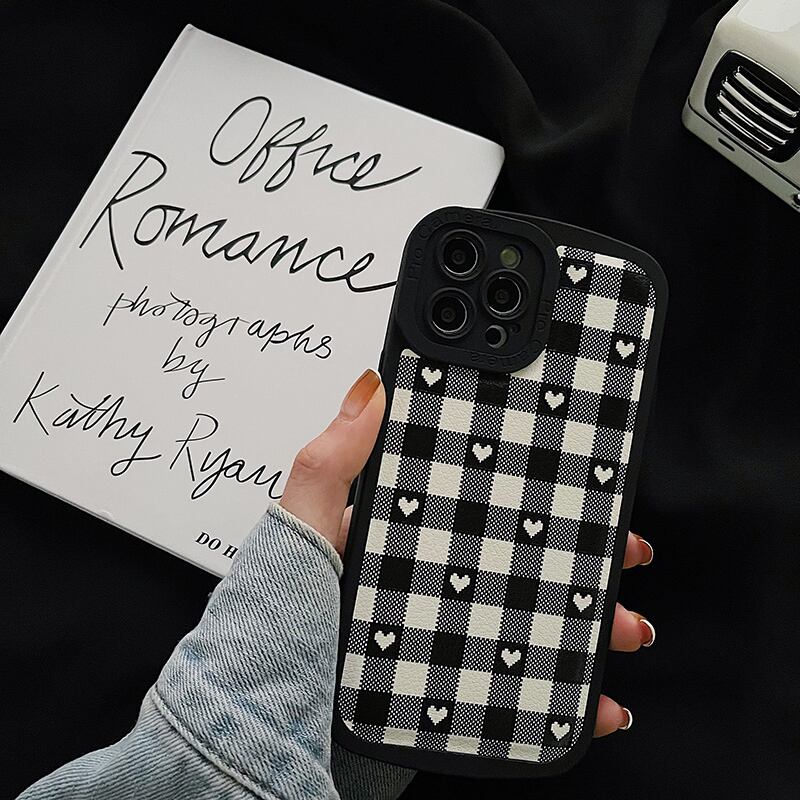 Office
Romance
photographs
by
Kathy Ryan
DO H
Pro Camera
Pro Camera